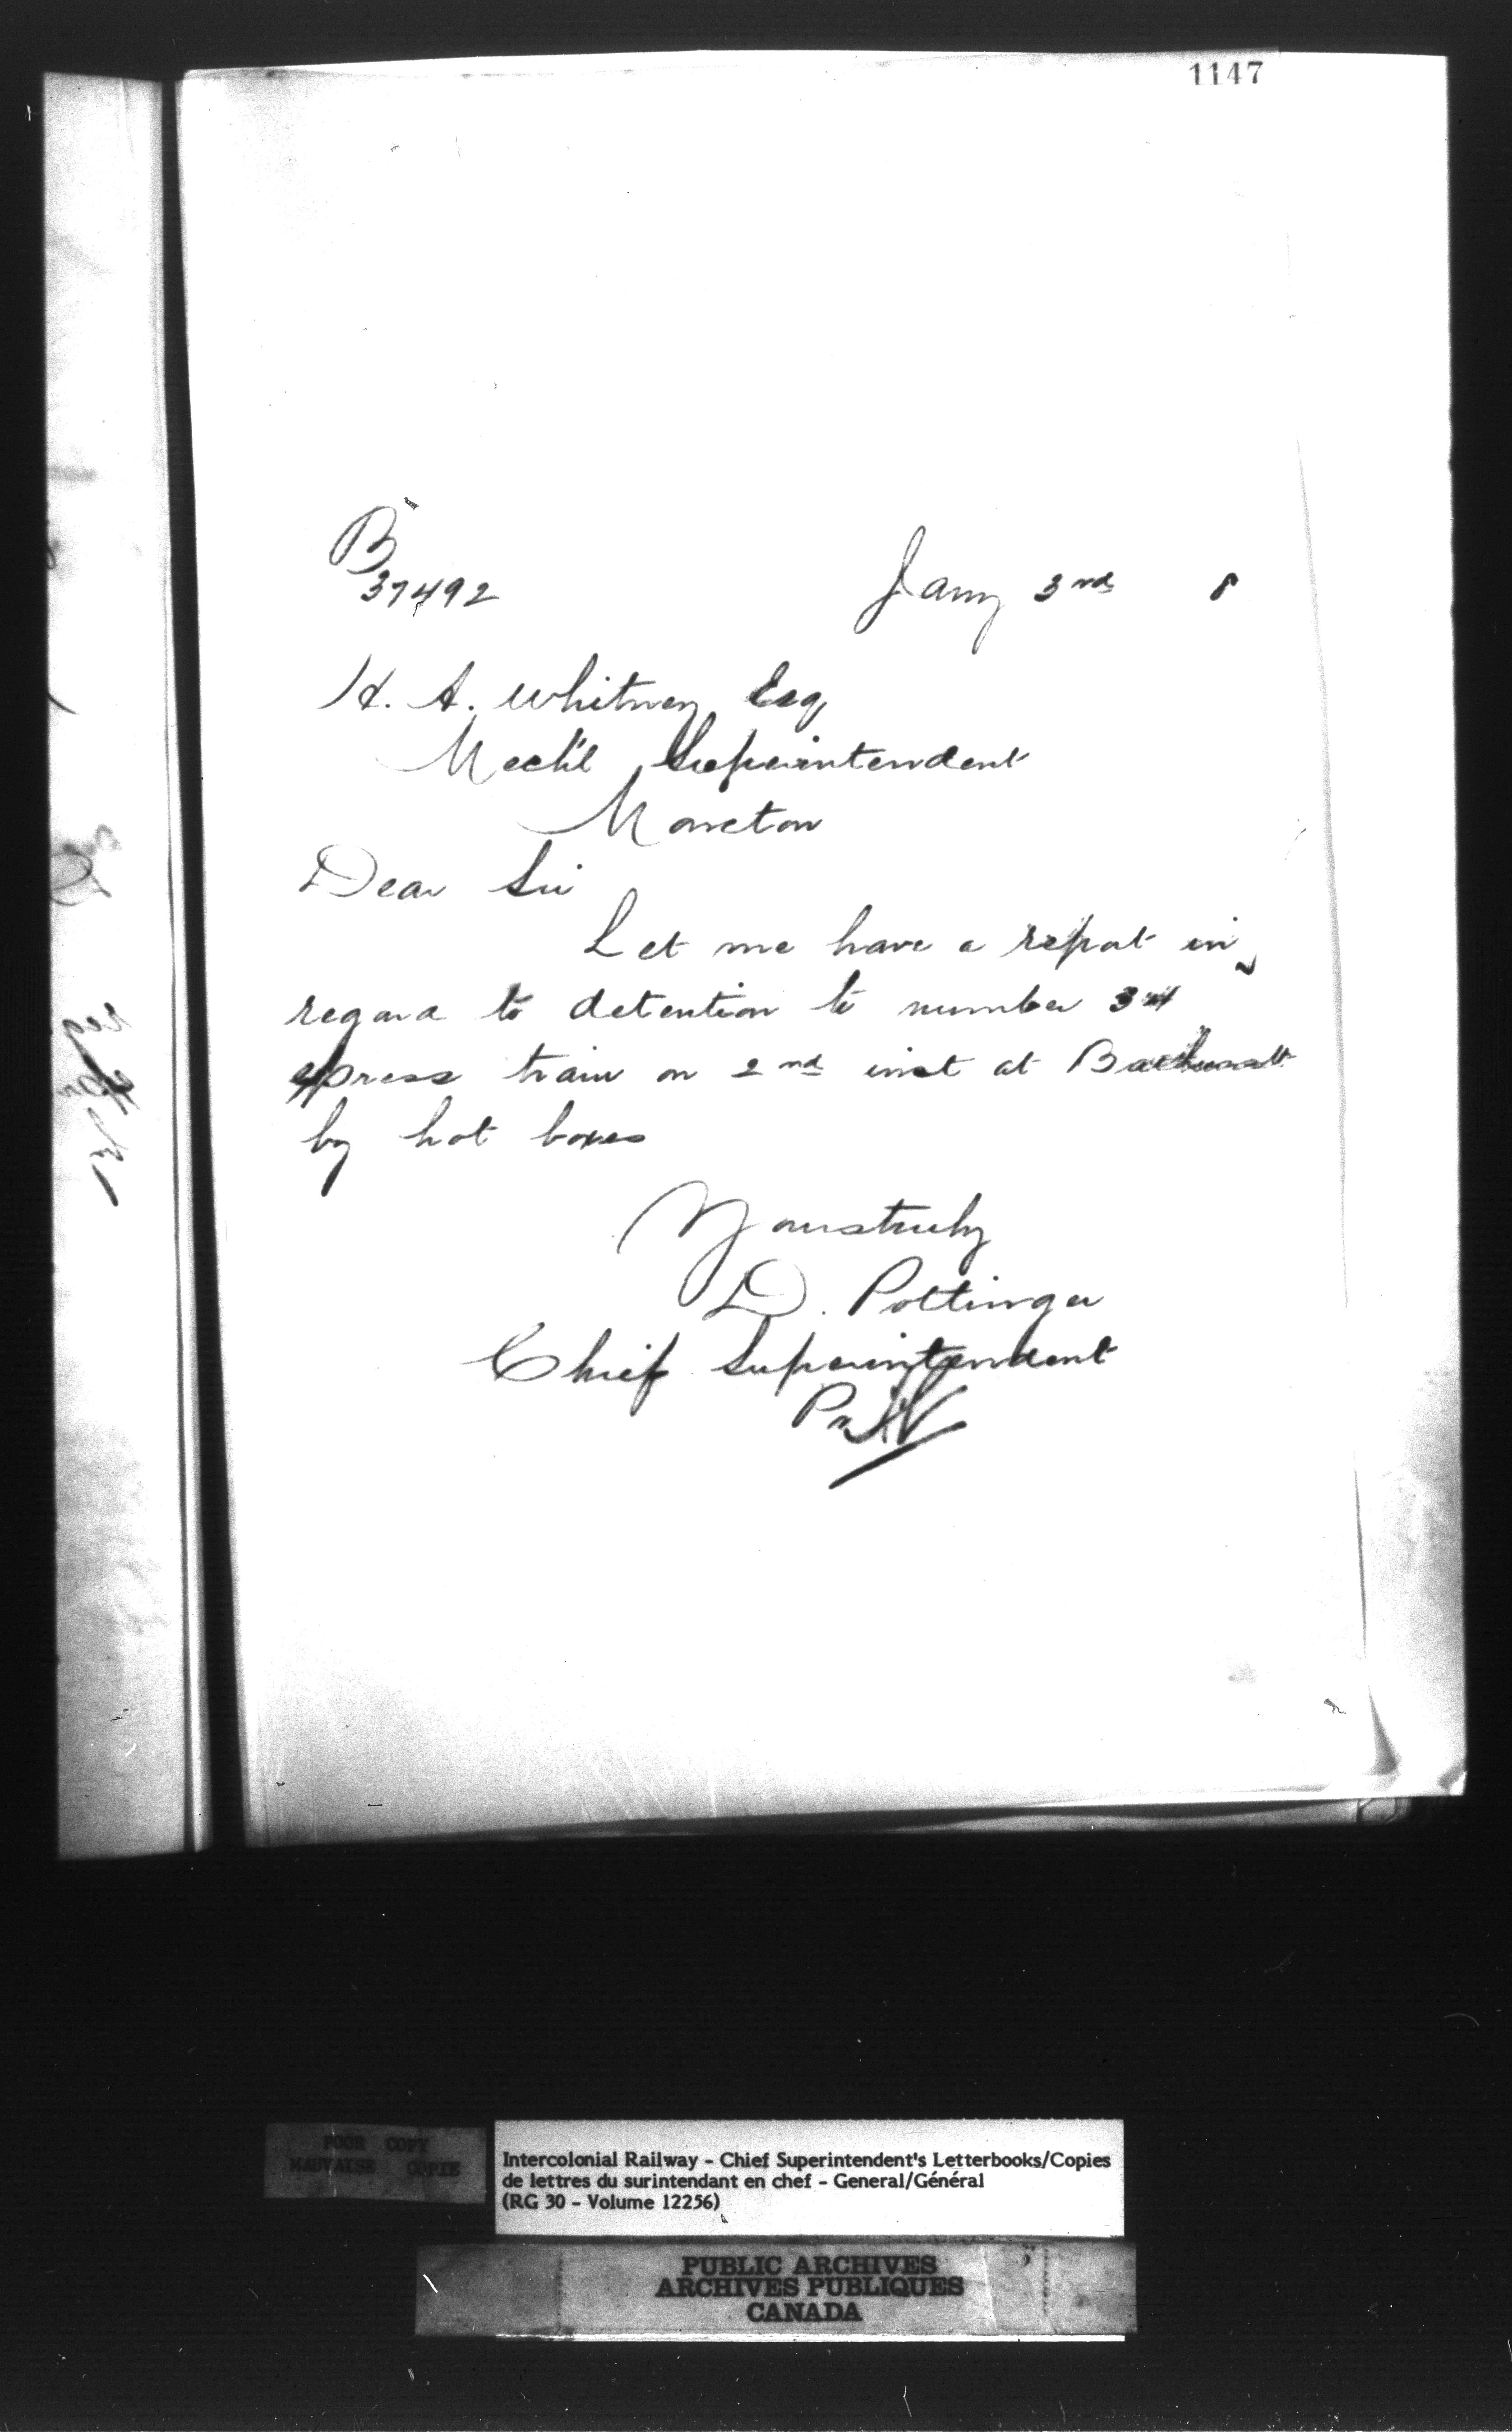 1147
B
37492
Jany 3rd 8
H. A. Whitney Esq
Mech'l Superintendent
Moncton
Dear Sir
Let me have a report in
regard to detention to number 34
express train on 2nd inst at Bathurst
by hot boxes
Yours truly
D. Pottinger
Chief Superintendent
POOR COPY
MAUVAISE COPIE
Intercolonial Railway - Chief Superintendent's Letterbooks/Copies
de lettres du surintendant en chef - General/Général
(RG 30 - Volume 12256)
PUBLIC ARCHIVES
ARCHIVES PUBLIQUES
CANADA